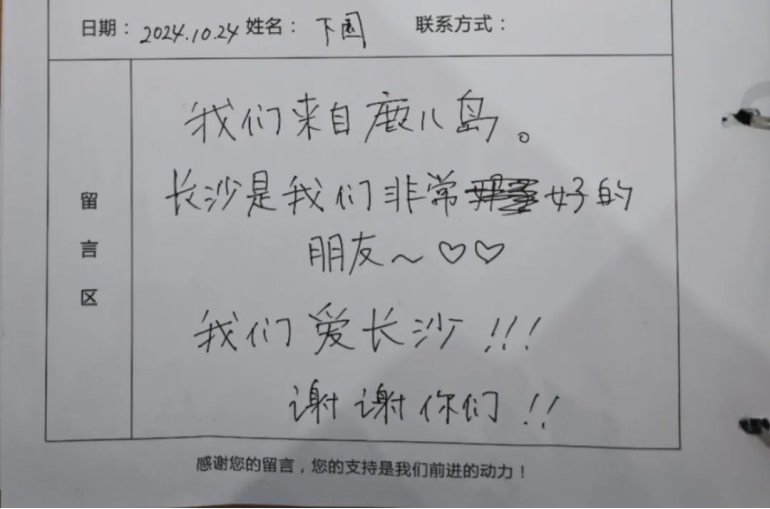 日期：2024.10.24 姓名：下园 联系方式：
留言区
我们来自鹿儿岛。
长沙是我们非常好的
朋友～♡♡
我们爱长沙!!!
谢谢你们!!
感谢您的留言，您的支持是我们前进的动力！